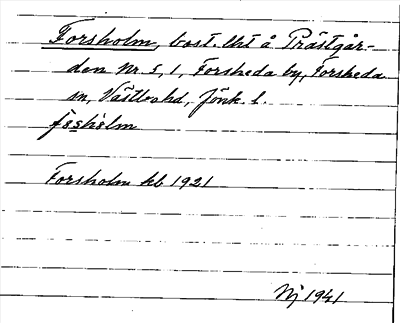 Forsholm, bost.lht å Prästgår-
den Nr 5, 1, Forsheda by, Forsheda
sn, Västbo hd, Jönk. l.
fåshålm
Forsholm kb 1921
Nj 1941